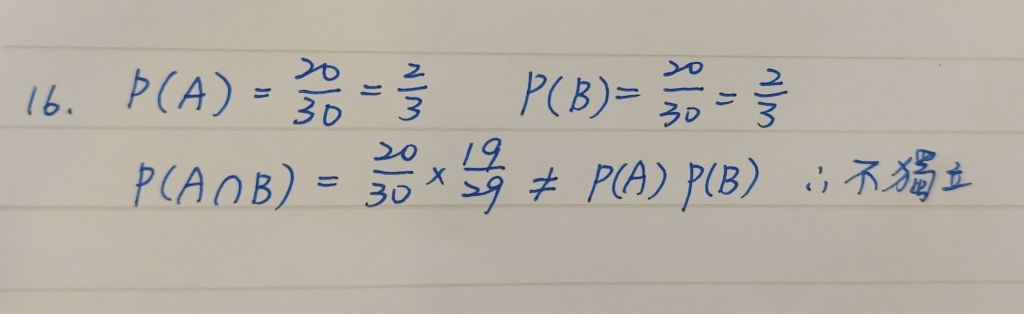 16. P(A) = 20/30 = 2/3 P(B) = 20/30 = 2/3
P(A∩B) = 20/30 × 19/29 ≠ P(A) P(B) ∴ 不獨立